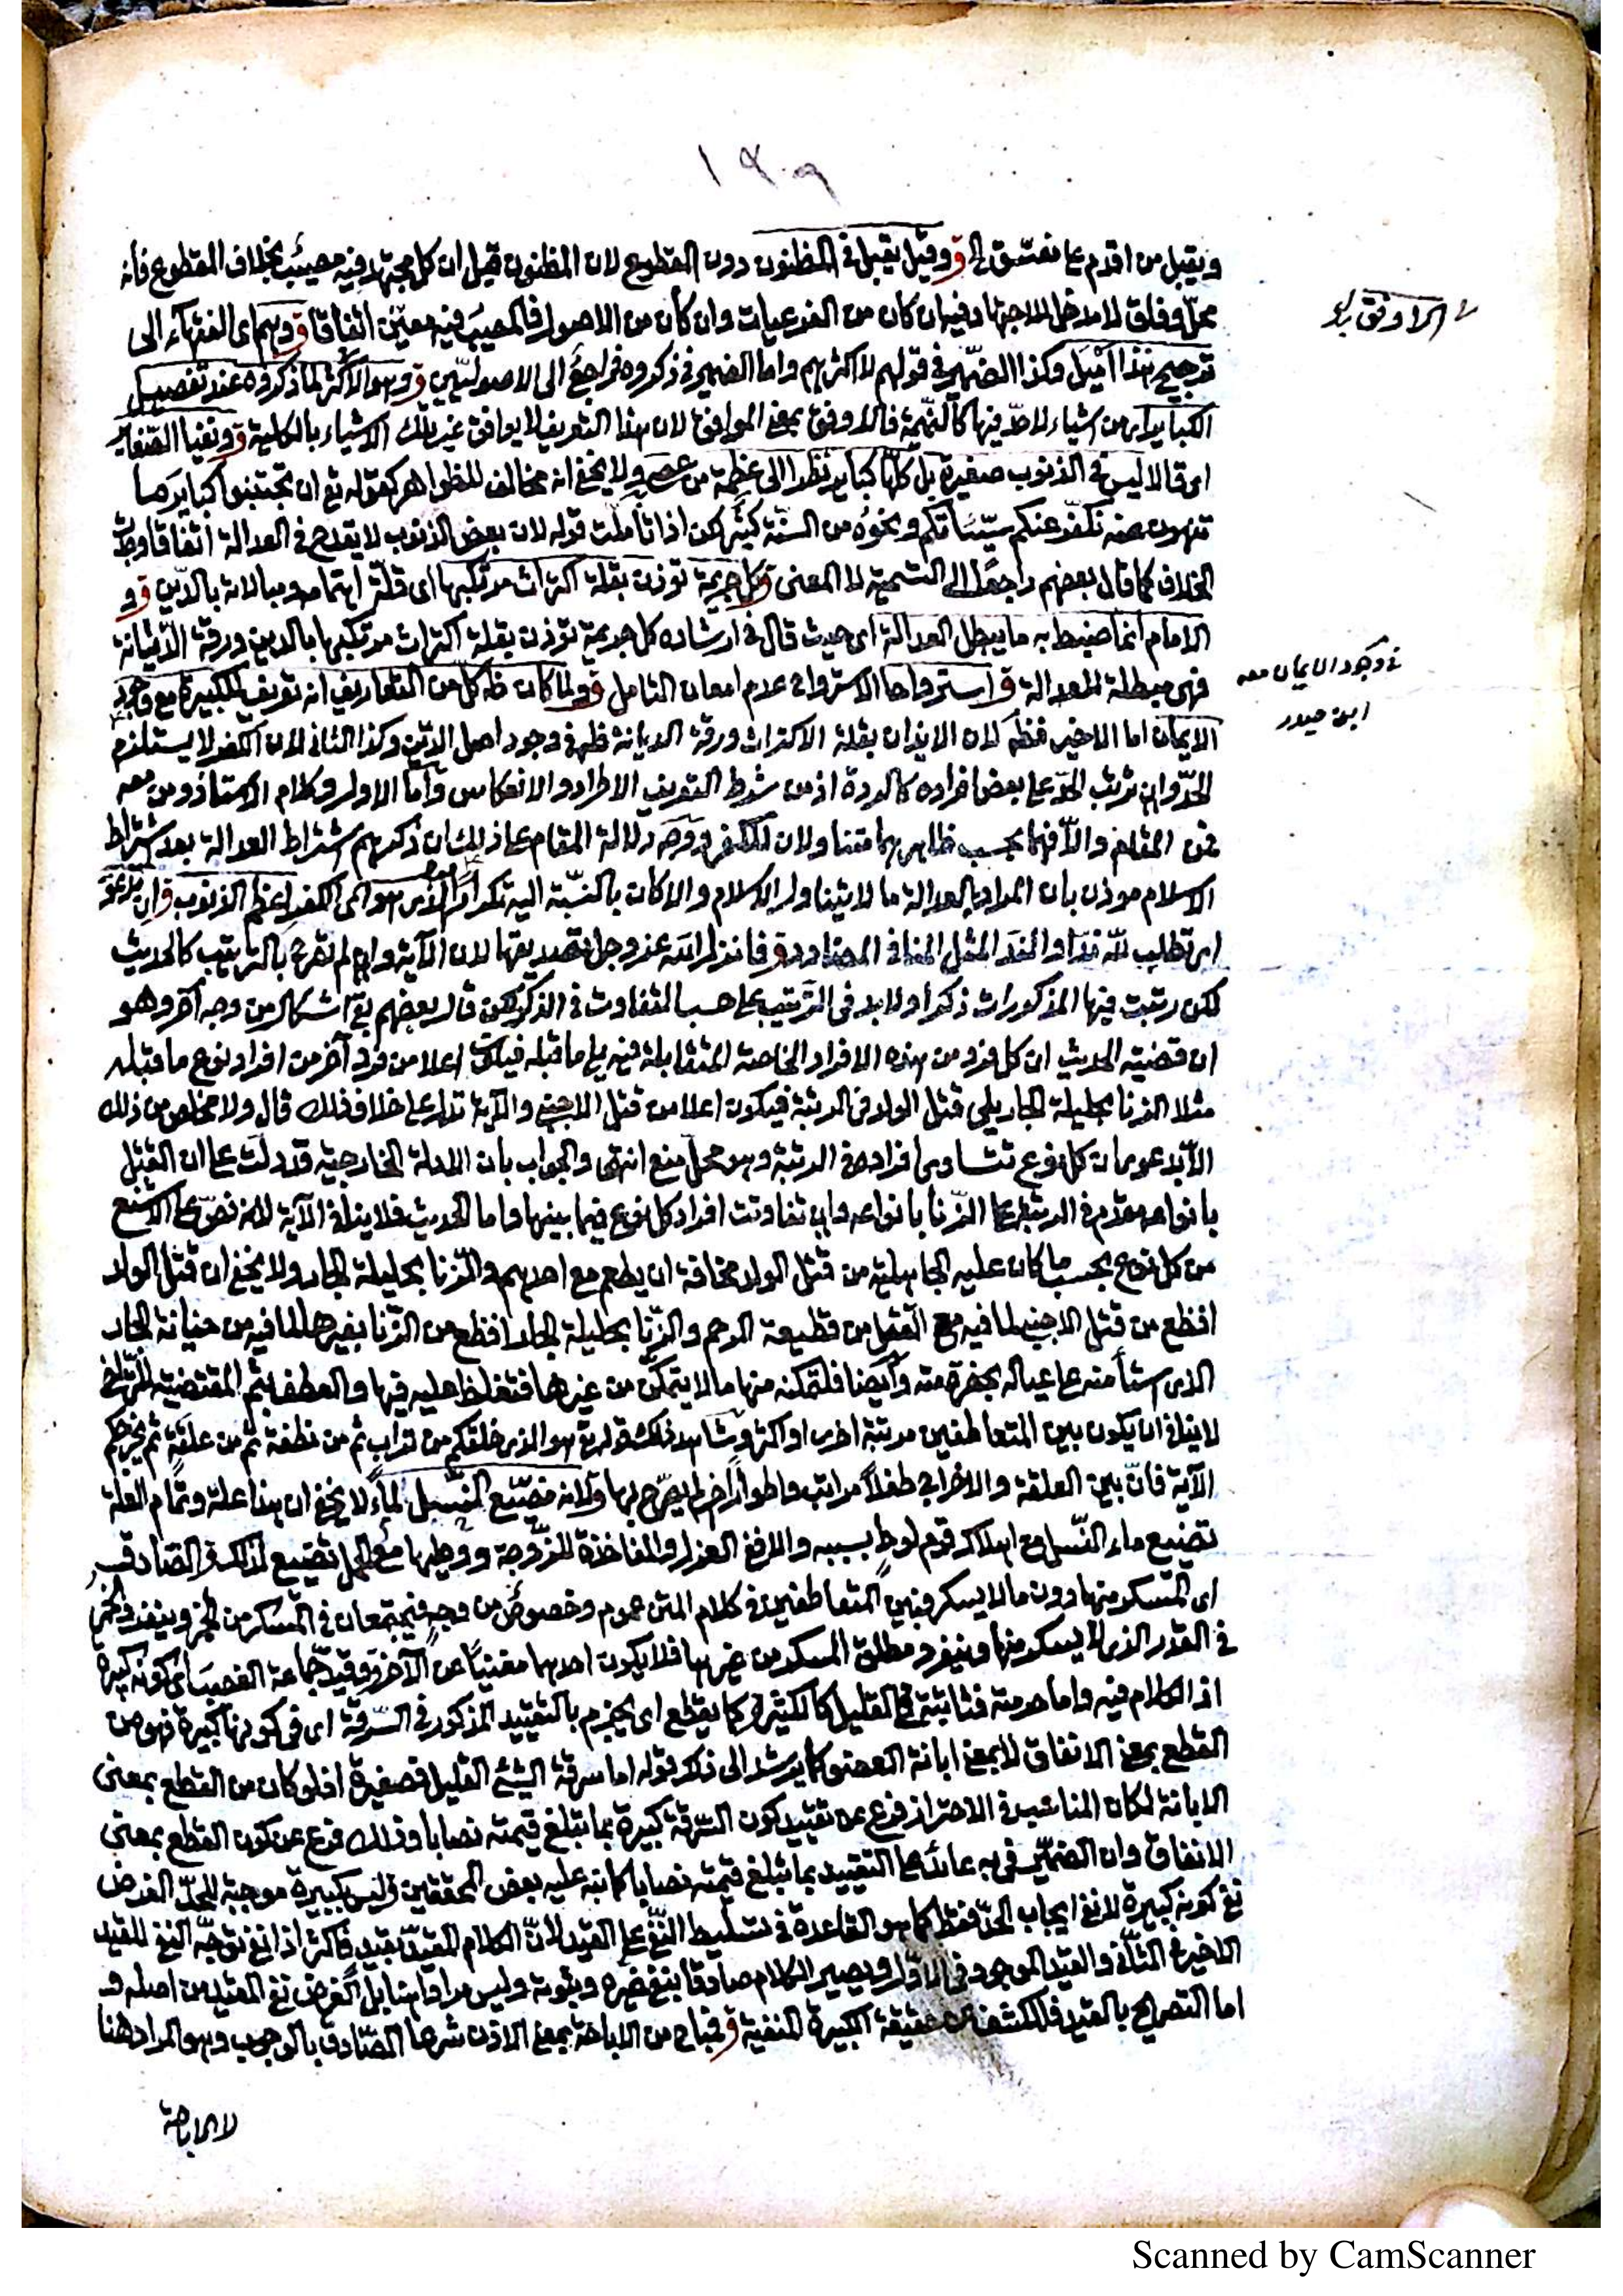 ١٢٠٩
ويقبل من اقدم على مفسّق الخ ق وقيل يقبل في المظنون دون المقطوع لان المظنون قيل ان كل مجتهد فيه مصيب بخلاف المقطوع فأنه
محلّ وفاق لا مدخل للاجتهاد فيه ان كان من الفرعيات وان كان من الاصول فالمصيب فيه معيّن اتفاقا ق وهم اى الفقهآء الى
ترجيح هذا اميل وكذا الضمير في قولهم لا اكثرهم واما الضمير في ذكروه فراجع الى الاصوليّين ق وهو الاكثر لما ذكروه عند تفصيل
الكبائر اى من اشياء لا حدّ فيها كالنميمة فالاوفق بمعنى الموافق لان هذا التعريف لا يوافق غير تلك الاشياء بالكلية ق ونفيا الصّغاير
اى قالا ليس في الذنوب صغيرة بل كلّها كباير نظرا الى عظمة من عصى ولا يخفى انه مخالف للظواهر كقوله تع ان تجتنبوا كبائر ما
تنهون عنه نكفّر عنكم سيّئاتكم ونحوه من السنّة كثير لكن اذا تأملت قوله لان بعض الذنوب لا يقدح في العدالة اتفاقا وجدت
الخلاف كما قال بعضهم راجعا الى التسمية لا المعنى ق كل جريمة توذن بقلة اكتراث مرتكبها اى قلّة اهتمامه ومبالاته بالدّين ق و
الامام انما ضبط به ما يبطل العدالة اى حيث قال في ارشاده كل جريمة توذن بقلة اكتراث مرتكبها بالدين ورقة الدّيانة
فهى مبطلة للعدالة ق استرواحا الاسترواح عدم امعان التأمل ق ولما كان ظ كل من التعاريف انه تعريف للكبيرة مع وجود
الايمان اما الاخير فظ لان الايذان بقلة الاكتراث ورقة الديانة ظ في وجود اصل الدّين وكذا الثاني لان الكفر لا يستلزم
الحدّ وان ترتب الحدّ على بعض افراده كالردة اذ من شرط التعريف الاطراد والانعكاس واما الاول وكلام الاستاذ ومن معه
بحسب ظاهرهما متناولان للكفر ووجه دلالة المقام على ذلك ان ذكرهم اشتراط العدالة بعد اشتراط
الاسلام موذن بان المراد بالعدالة ما لا يتناول الاسلام والا كان بالنسبة اليه تكرارا الذى هو اى الكفر اعظم الذنوب ق ان تدعو
اى تطلب لله ندا والند المثل المنافي المضاد ق فانزل الله عز وجل تصديقها لان الآية وان لم تصرح بالترتيب كالحديث
لكن رتبت فيها المذكورات ذكرا ولا بد في الترتيب على حسب التفاوت في الذكر لكن قال بعضهم بقي اشكال من وجه آخر وهو
ان قضية الحديث ان كل فرد من هذه الافراد الخاصة المتقابلة فيه يلي ما قبله فيكون اعلا من فرد آخر من افراد نوع ما قبله
مثلا الزنا بحليلة الجار يلي قتل الولد في الرتبة فيكون اعلا من قتل الاجنبي والآية تدل على خلاف ذلك قال ولا مخلص من ذلك
الا بدعوى ان كل نوع تتساوى افراده في الرتبة وهو محلّ منع انتهى والجواب بان الادلة الخارجية قد دلت على ان القتل
بانواعه مقدم في الرتبة على الزّنا بانواعه وان تفاوتت افراد كل نوع فيما بينها واما الحديث فلا ينافي الآية لانه نصّ على الاشنع
من كل نوع بحسب ما كان عليه الجاهلية من قتل الولد مخافة ان يطعم مع احدهم والزنا بحليلة الجار ولا يخفى ان قتل الولد
افظع من قتل الاجنبي لما فيه مع القتل من قطيعة الرحم والزّنا بحليلة الجار افظع من الزّنا بغيرها لما فيه من خيانة الجار
الذى استأمنه على عياله بحضرة منه وايضا فلتمكنه منها ما لا يتمكّن من غيرها فتغلظ عليه فيها والعطف بثم المقتضية للتراخي
لا ينافي ان يكون بين المتعاطفين مرتبة اخرى او اكثر وشاهد ذلك قوله تع هو الذى خلقكم من تراب ثم من نطفة ثم من علقة ثم يخرجكم
الآية فانّ بين العلقة والاخراج طفلا مراتب واطوارا اخر لم يصرّح بها ق لانه مضيّع لماء النّسل لا يخفى ان هذا علة وتمام العلة
تضييع ماء النّسل مع اهلاك قوم لوط بسببه والا ففي العزل والمفاخذة للزّوجة ووطيها مع الحمل تضييع لذلك ق الصادق
اى المسكر منها دون ما لا يسكر فبين المتعاطفين في كلام المتن عموم وخصوص من وجه فيجتمعان في المسكر من الخمر وينفرد الخمر
في القدر الذى لا يسكر منها وينفرد مطلق المسكر من غيرها فلا يكون احدهما مغنيا عن الآخر ق وقيد جماعة الغصب اى كونه كبيرة
اذ الكلام فيه واما حرمته فثابتة في القليل كالكثير ق كما يقطع اى يجزم بالتقييد المذكور في السّرقة اى في كونها كبيرة فهو من
القطع بمعنى الاتفاق لا بمعنى ابانة العضو كما يرشد الى ذلك قوله اما سرقة الشيء القليل فصغيرة اذ لو كان من القطع بمعنى
الابانة لكان المناسب في الاحتراز فرع عن تقييد كون السّرقة كبيرة بما تبلغ قيمته نصابا وذلك فرع عن كون القطع بمعنى
الاتفاق وان الضمّير في به عائد على التقييد بما تبلغ قيمته نصابا كما نبه عليه بعض المحققين ق ليس بكبيرة موجبة للحدّ الغرض
نفي كونه كبيرة لا نفي ايجاب الحدّ فقط كما هو القاعدة في تسليط النّفي على القيد لانّ الكلام المقيّد بقيد فاكثر اذا نفي توجّه النفي للقيد
الاخير في الثاني والقيد الموجود في الاول ويصير الكلام صادقا بنفي غيره وثبوته وليس مرادا هنا بل الغرض نفي المقيد من اصله و
اما التصريح بالقيد فللكشف عن حقيقة الكبيرة المنفية ق فمباح من الاباحة بمعنى الاذن شرعا الصّادق بالوجوب وهو المراد هنا
لا الاباحة
في وجود الايمان معه
ابن حيدر